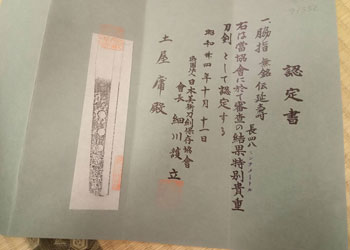 認定書
一、脇指 無銘 伝延寿 長四八
右は當協會に於て審査の結果特別貴重
刀剣として認定する
昭和廿四年十月十一日
財團法人日本美術刀剣保存協會
會長 細川護立
土屋 殿